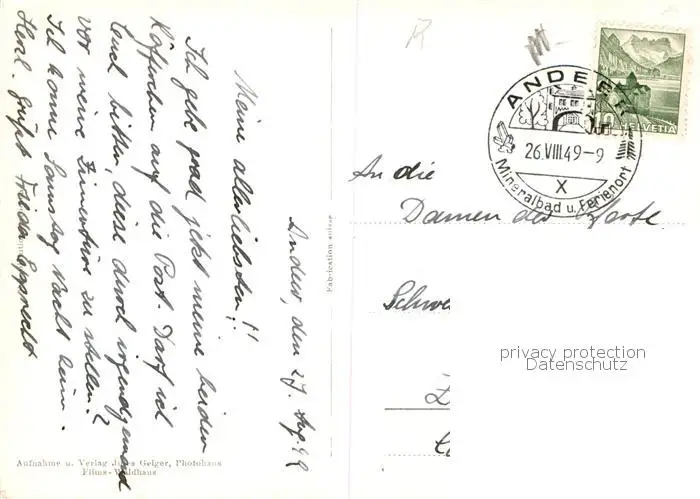 Andeer, den 27. Aug. 49
Meine allerliebsten!!
Ich gebe grad jetzt meine beiden
Köfferchen auf die Post. Darf ich
Euch bitten, diese durch irgendjemand
vor meine Zimmertüre zu stellen?
Ich komme Samstag Nacht heim.
Herzl. grüsst Frieda
Aufnahme u. Verlag Jules Geiger, Photohaus
Flims-Waldhaus
Fabrication suisse
ANDEER
26.VIII.49-9
X
Mineralbad u. Ferienort
10 HELVETIA
An die
Damen der
Schwe
privacy protection
Datenschutz